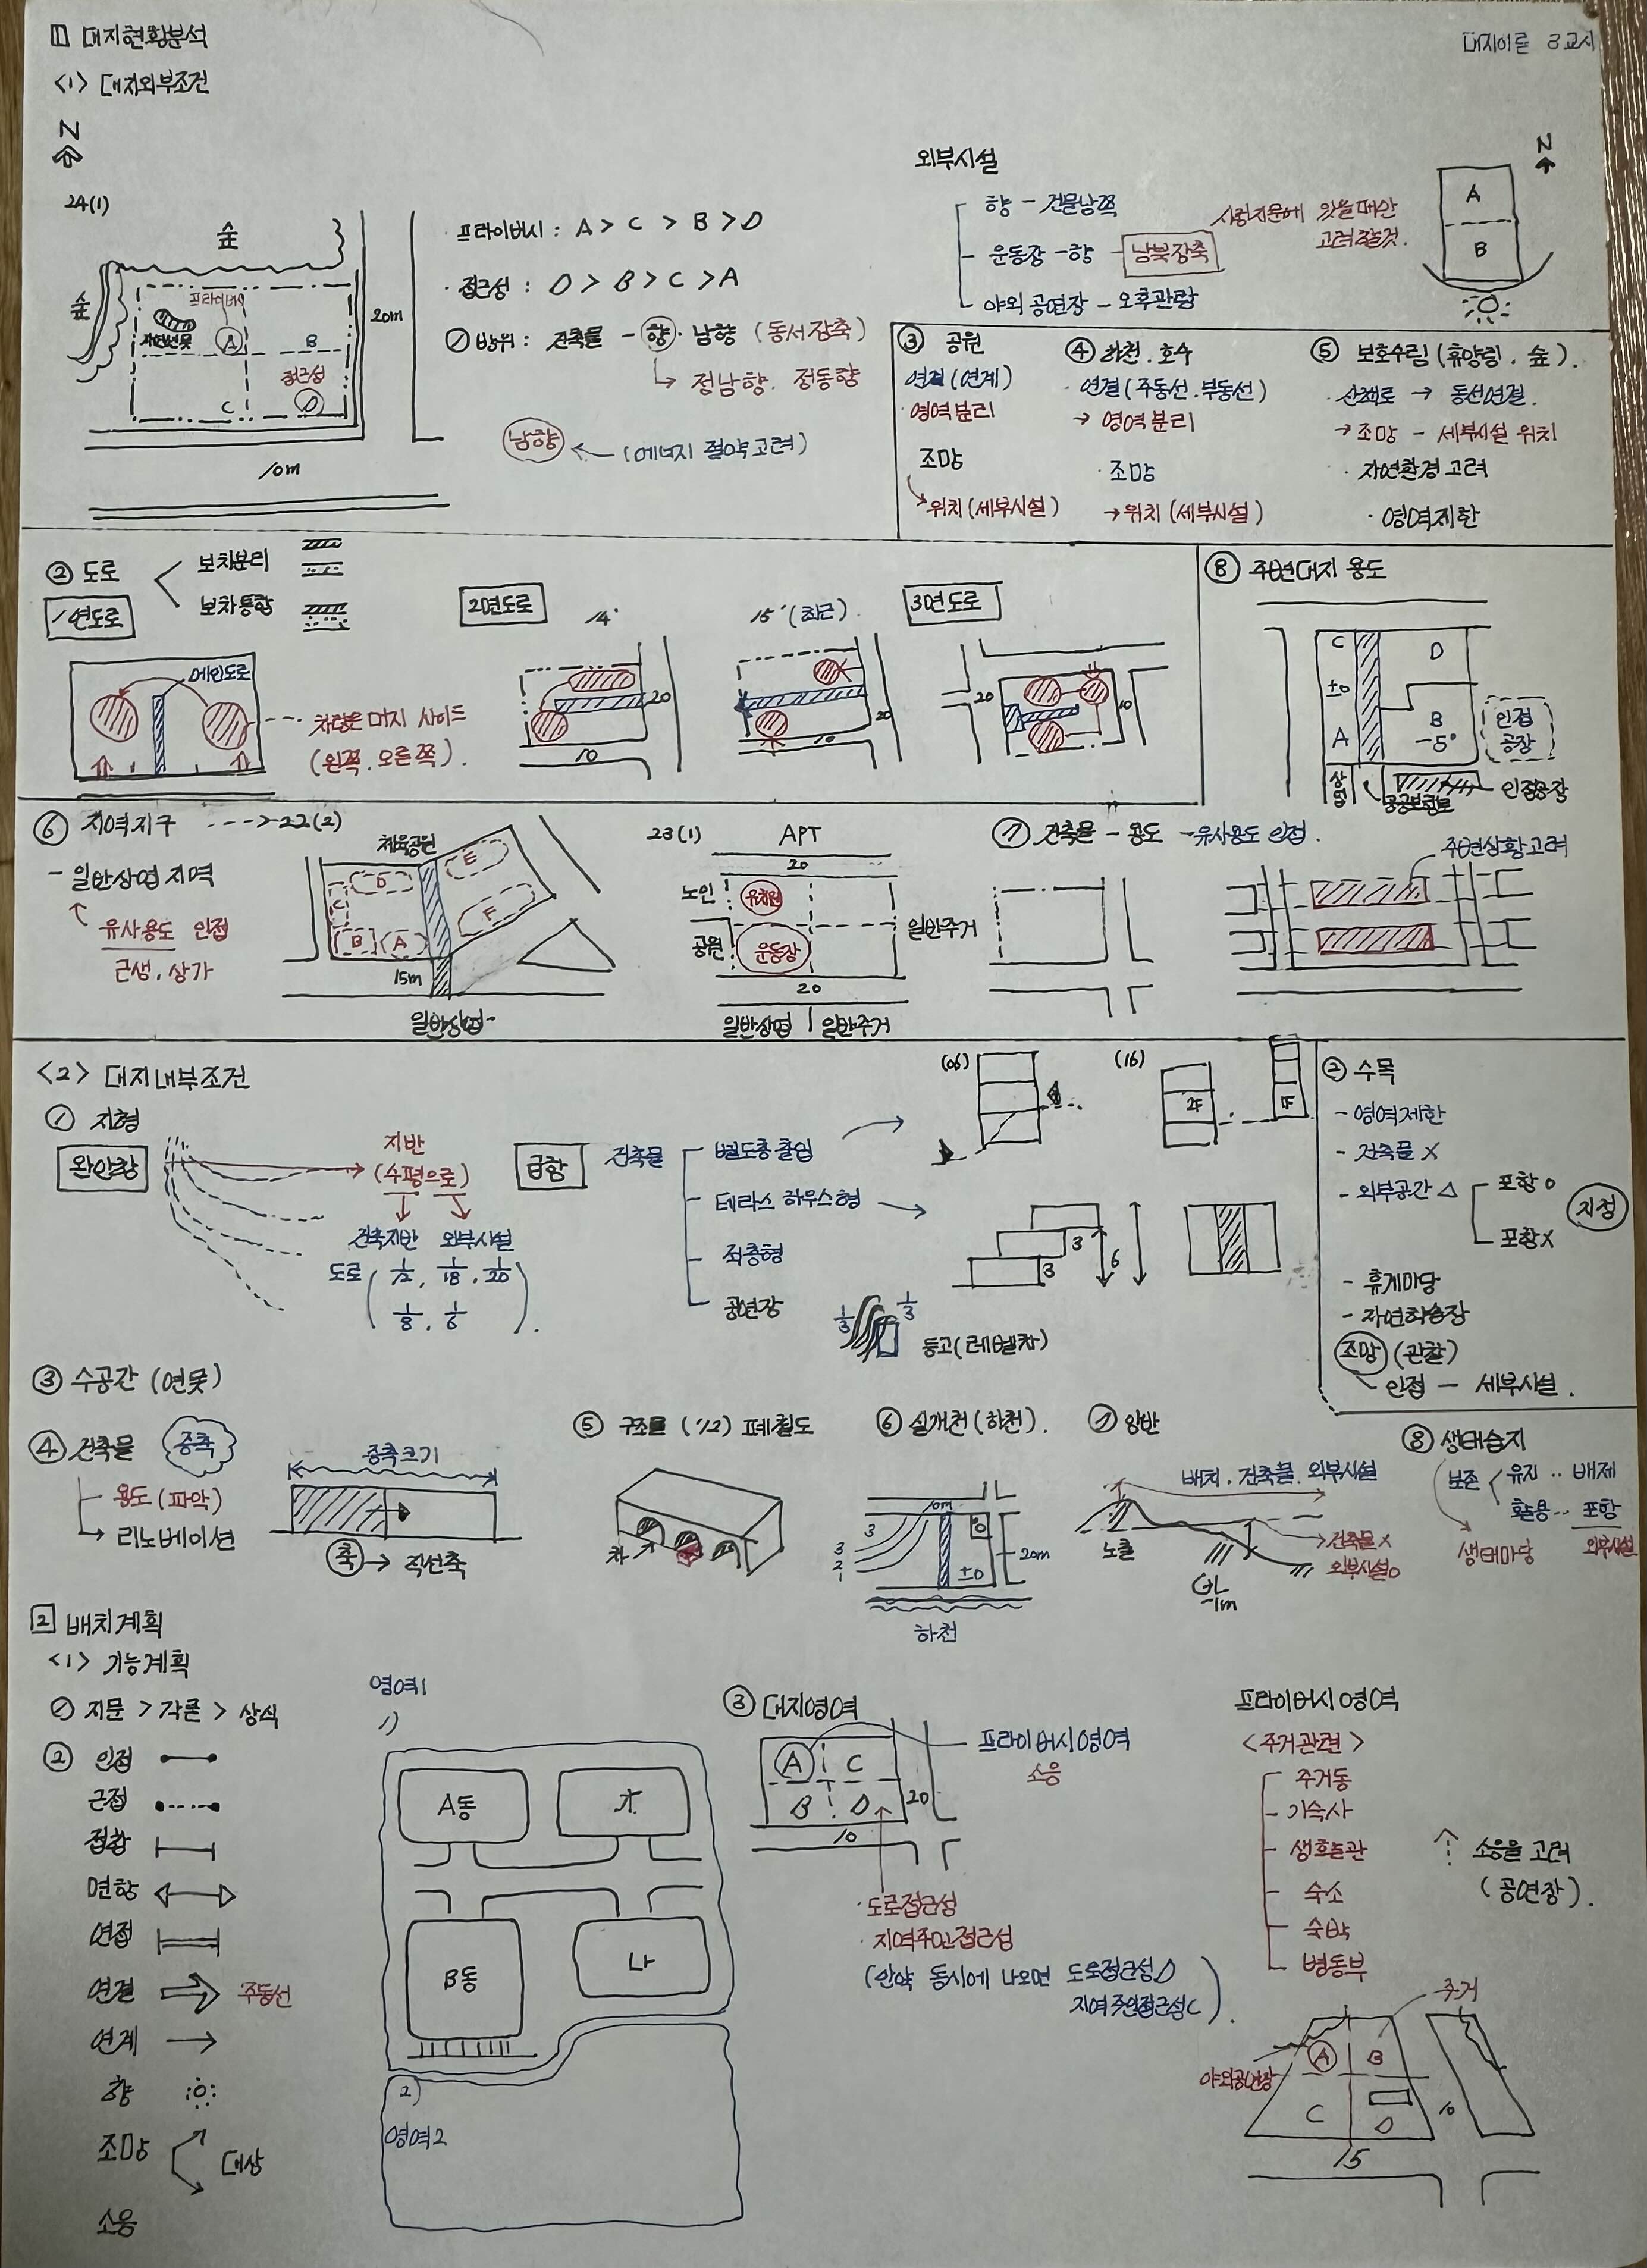 1 대지현황분석
대지이론 3교시
<1> 대지외부조건
N
24(1)
숲
숲
프라이버시
자연연못
A
B
접근성
C
D
20m
10m
· 프라이버시 : A > C > B > D
· 접근성 : D > B > C > A
① 방위 : 건축물 - 향 · 남향 (동서장축)
→ 정남향. 정동향
남향 ← (에너지 절약고려)
외부시설
향 - 건물남쪽
운동장 - 향 - 남북장축
야외 공연장 - 오후관람
시험지문에 있을때만
고려할것.
N
A
B
③ 공원
연결(연계)
· 영역분리
조망
→ 위치(세부시설)
④ 하천. 호수
· 연결(주동선.부동선)
→ 영역분리
· 조망
→ 위치(세부시설)
⑤ 보호수림(휴양림. 숲).
· 산책로 → 동선연결.
→ 조망 - 세부시설 위치
· 자연환경고려
· 영역제한
② 도로
보차분리
보차통합
1면도로
메인도로
차량은 대지 사이드
(왼쪽. 오른쪽).
2면도로
14'
20
10
15'(최근).
20
10
3면도로
20
10
⑧ 주변대지 용도
C
D
±0
A
B
-5°
인접
공장
상업
공공보행로
인접공장
⑥ 지역지구 ---> 22(2)
- 일반상업지역
유사용도 인접
근생. 상가
체육공원
D
E
C
F
B
A
15m
일반상업
23(1)
APT
20
노인
유치원
공원
운동장
일반주거
20
일반상업 | 일반주거
⑦ 건축물 - 용도 - 유사용도 인접.
주변상황고려
<2> 대지내부조건
① 지형
완만함
지반
(수평으로)
건축지반 외부시설
도로 ( 1/12, 1/18, 1/20
1/8, 1/6 ).
급함
건축물
별도층 출입
테라스 하우스형
적층형
공연장
1/3
1/3
등고(레벨차)
(06)
(16)
2F
1F
3
3
6
② 수목
- 영역제한
- 건축물 X
- 외부공간 △
포함 O
포함 X
지정
- 휴게마당
- 자연학습장
조망 (관찰)
인접 - 세부시설.
③ 수공간 (연못)
④ 건축물
증축
용도(파악)
→ 리노베이션
증축크기
축 → 직선축
⑤ 구조물 (1/2) 폐철도
차
⑥ 실개천(하천).
10m
3
3
2
1
±0
20m
하천
⑦ 암반
배치. 건축물. 외부시설
노출
→ 건축물 X
외부시설 O
GL
-1m
⑧ 생태습지
보존
유지 ·· 배제
활용 ·· 포함
생태마당
외부시설
2 배치계획
<1> 기능계획
① 지문 > 각론 > 상식
② 인접
근접
접합
면향
연접
연결
주동선
연계
향
조망
대상
소음
영역1
1)
A동
가
B동
나
2)
영역2
③ 대지영역
A
C
B
D
20
10
프라이버시영역
소음
· 도로접근성
· 지역주민접근성
(만약 동시에 나오면 도로접근성 D
지역주민접근성 C).
프라이버시 영역
<주거관련>
주거동
기숙사
생활관
숙소
숙박
병동부
소음을 고려
(공연장).
주거
A
B
야외공연장
C
D
10
15